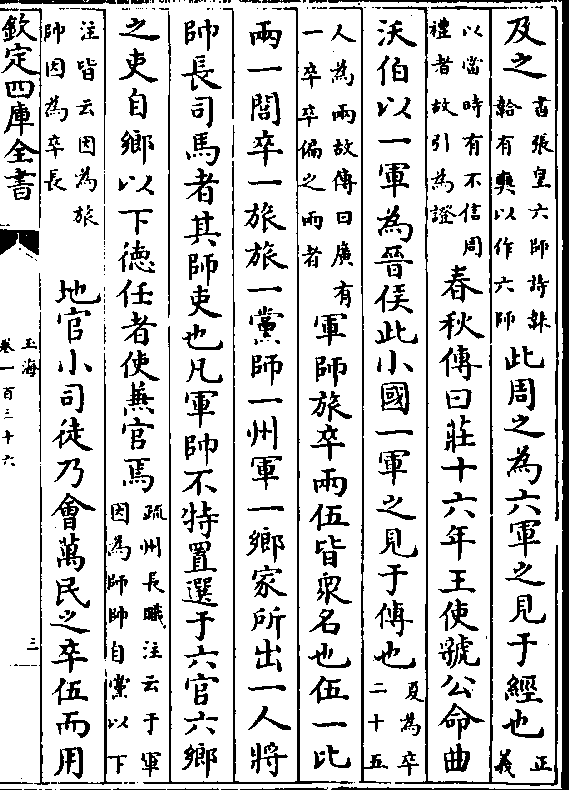 及之書張皇六師詩韎韐有奭以作六師此周之為六軍之見于經也正義
以當時有不信周禮者故引為證春秋傳曰莊十六年王使虢公命曲
沃伯以一軍為晉侯此小國一軍之見于傳也百人為卒二十五
人為兩故傳曰廣有一卒卒偏之兩者軍師旅卒兩伍皆衆名也伍一比
兩一閭卒一旅旅一黨師一州軍一鄉家所出一人將
帥長司馬者其師吏也凡軍帥不特置選于六官六鄉
之吏自鄉以下徳任者使兼官焉疏州長職注云于軍因為師帥自黨以下
注皆云因為旅帥因為卒長地官小司徒乃會萬民之卒伍而用
欽定四庫全書
玉海
卷一百三十六
三